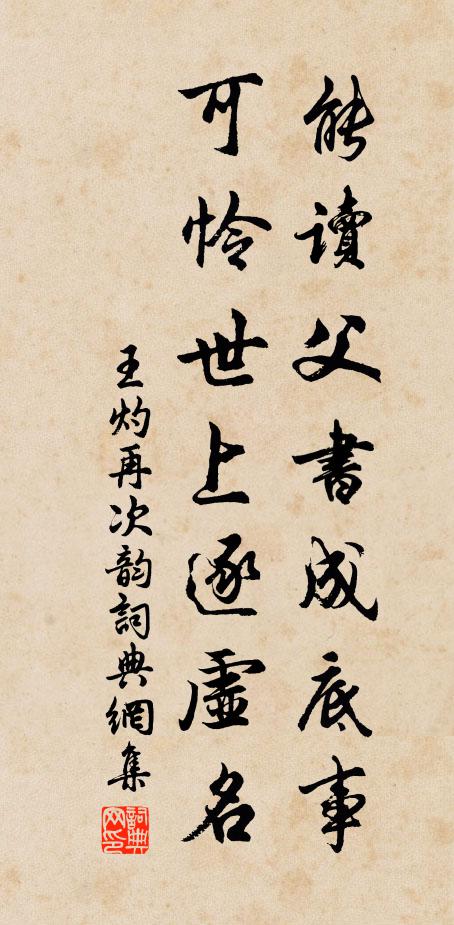 能讀父書成底事
可怜世上逐虛名
王灼再次韵詞典網集
詞典网印